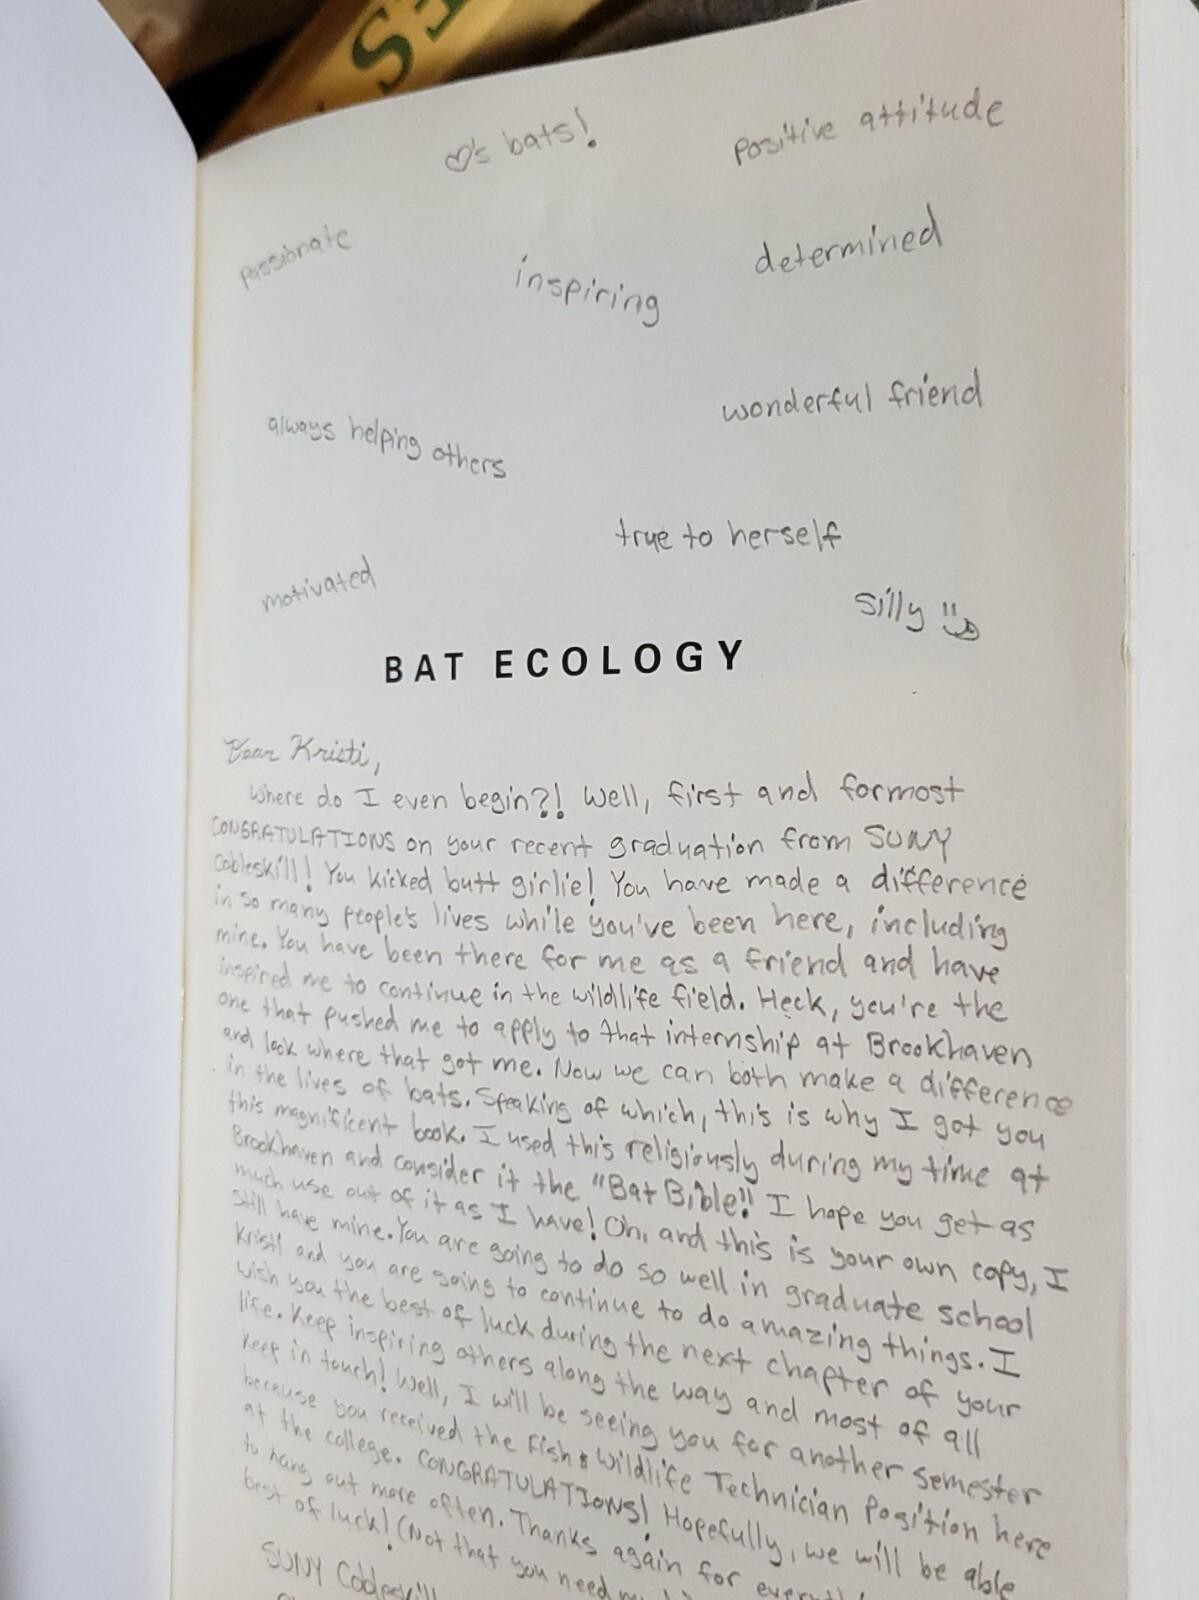 ♡'s bats!
positive attitude
passionate
inspiring
determined
always helping others
wonderful friend
true to herself
motivated
silly
BAT ECOLOGY
Dear Kristi,
Where do I even begin?! Well, first and formost
CONGRATULATIONS on your recent graduation from SUNY
Cobleskill! You kicked butt girlie! You have made a difference
in so many people's lives while you've been here, including
mine. You have been there for me as a friend and have
inspired me to continue in the wildlife field. Heck, you're the
one that pushed me to apply to that internship at Brookhaven
and look where that got me. Now we can both make a difference
in the lives of bats. Speaking of which, this is why I got you
this magnificent book. I used this religiously during my time at
Brookhaven and consider it the "Bat Bible"! I hope you get as
much use out of it as I have! Oh, and this is your own copy, I
still have mine. You are going to do so well in graduate school
Kristi and you are going to continue to do amazing things. I
wish you the best of luck during the next chapter of your
life. Keep inspiring others along the way and most of all
keep in touch! Well, I will be seeing you for another semester
because you received the Fish & Wildlife Technician Position here
at the college. CONGRATULATIONS! Hopefully, we will be able
to hang out more often. Thanks again for
best of luck! (Not that you need
SUNY Cobleskill